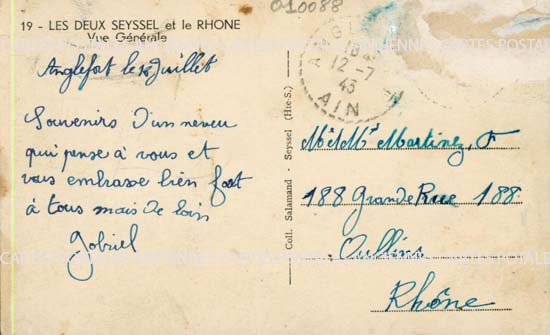 010088
19 - LES DEUX SEYSSEL et le RHONE
Vue Générale
Anglefort le Juillet
Souvenirs D'un neveu
qui pense à vous et
vous embrasse bien fort
à tous mais De loin
Gabriel
Coll. Salamand - Seyssel (Hte-S.)
12-7
43
AIN
Mr Martinez, F
188 Grande Rue 188
Oullins
Rhône
CARTES POSTALES